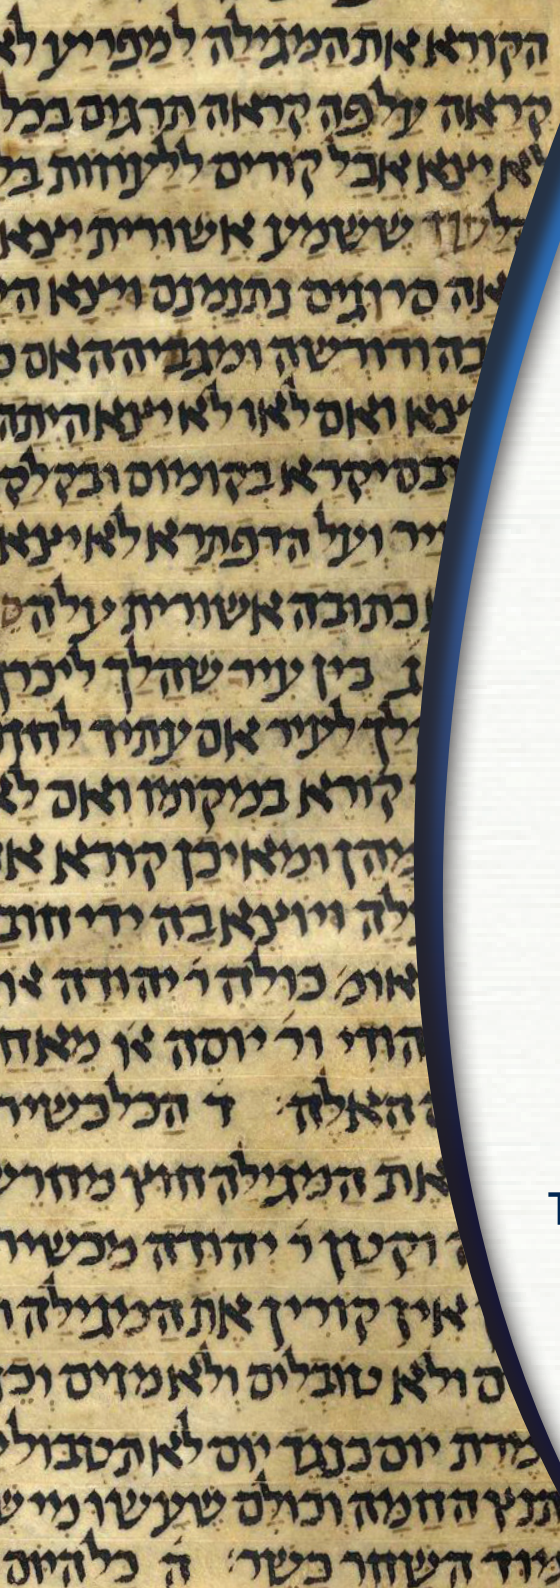 הקורא את המגילה למפריע לא
קראה על פה קראה תרגום בכל
לא יצא אבל קורים ללעוזות בל
ששמע אשורית יצא
סרוגים נתנמנם ויצא הי
ודורשה ומגביהה אם כ
יצא ואם לאו לא יצא היתה
ובסיקרא בקומוס ובקלק
ועל הדפתרא לא יצא
כתובה אשורית על הס
בין עיר שהלך לכרך
לעיר אם עתיד לחזור
קורא במקומו ואם לא
מהן ומאיכן קורא א
ויוצא בה ידי חוב
אומ׳ כולה ר׳ יהודה או
יהודי ור׳ יוסה או מאח
האלה ד הכל כשיר
את המגילה חוץ מחרש
וקטן ר׳ יהודה מכשיר
אין קורין את המגילה ו
ולא טובלים ולא מזים וכן
יום כנגד יום לא תטבול
החמה וכולם שעשו מיש
השחר כשר ה כל היום